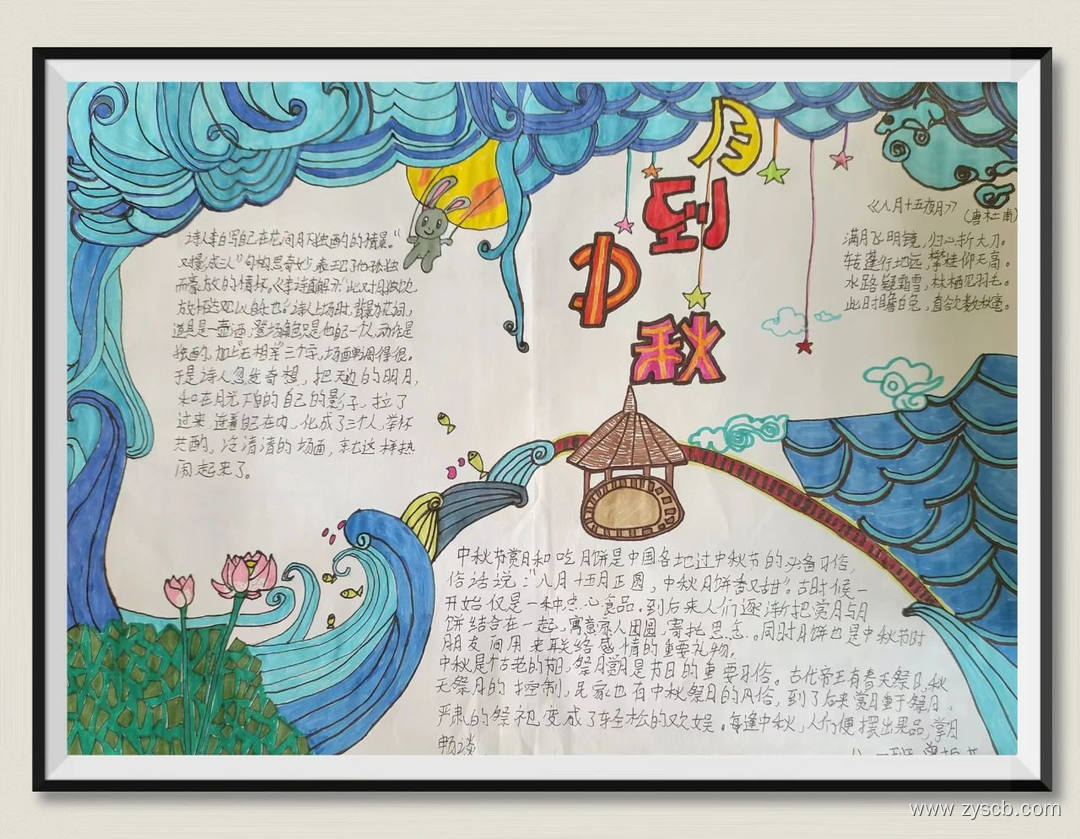 月到中秋
诗人李白写自己在花间月下独酌的情景。“
成三人”句构思奇妙,表现了他孤独
而豪放的情怀。《李诗直解》:此对月独饮
放怀
诗人上场时,背景为花间,
道具是一壶酒,登场角色只是他自己一个人,动作是
独酌,加上“无相亲”三个字,场面单调得很。
于是诗人忽发奇想,把天边的明月,
和在月光下的自己的影子,拉了
过来,连着自己在内,化成了三个人,举杯
共酌,冷清清的场面,就这样热
闹起来了。
《八月十五夜月》
(唐杜甫)
满月飞明镜,归心折大刀。
转蓬行地远,攀桂仰天高。
水路疑霜雪,林栖见羽毛。
此时瞻白兔,直欲数秋毫。
中秋节赏月和吃月饼是中国各地过中秋节的必备习俗,
俗话说:“八月十五月正圆,中秋月饼香又甜”。古时候一
开始仅是一种点心食品。到后来人们逐渐把赏月与月
饼结合在一起,寓意家人团圆,寄托思念。同时月饼也是中秋节时
朋友间用来联络感情的重要礼物。
中秋是个古老的节日,祭月赏月是节日的重要习俗。古代帝王有春天祭日,秋
天祭月的 制,民家也有中秋祭月的风俗,到了后来赏月重于祭月,
严肃的祭祀变成了轻松的欢娱。每逢中秋,人们便摆出果品,赏月
畅谈
一班
www.zyscb.com